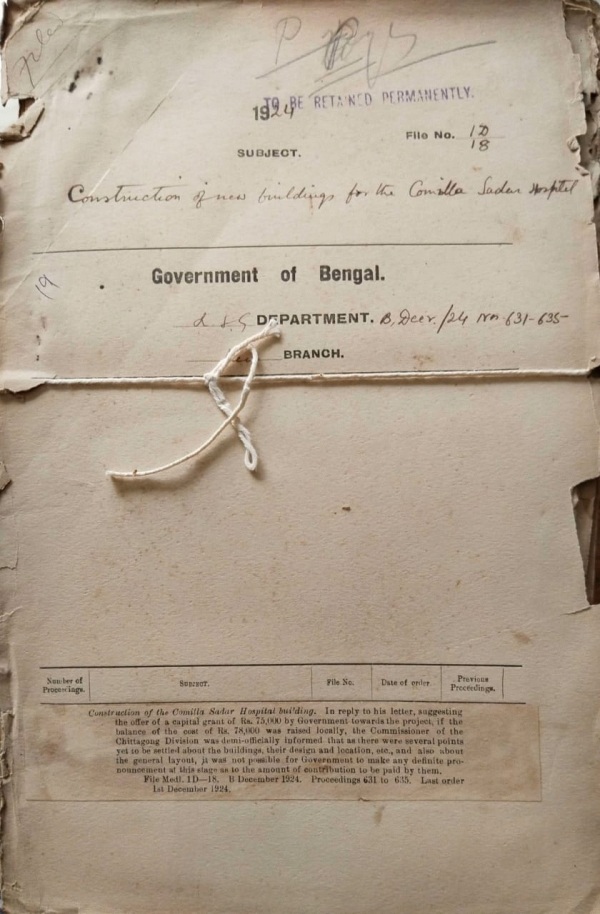 Filed
P
TO BE RETAINED PERMANENTLY.
1924
File No. 1D
18
SUBJECT.
Construction of new buildings for the Comilla Sadar Hospital
19
Government of Bengal.
L S G DEPARTMENT. B, Decr./24 Nos 631-635-
BRANCH.
Number of Proceedings. SUBJECT. File No. Date of order. Previous Proceedings.
Construction of the Comilla Sadar Hospital building. In reply to his letter, suggesting
the offer of a capital grant of Rs. 75,000 by Government towards the project, if the
balance of the cost of Rs. 78,000 was raised locally, the Commissioner of the
Chittagong Division was demi-officially informed that as there were several points
yet to be settled about the buildings, their design and location, etc., and also about
the general layout, it was not possible for Government to make any definite pro-
nouncement at this stage as to the amount of contribution to be paid by them.
File Medl. 1D—18. B December 1924. Proceedings 631 to 635. Last order
1st December 1924.